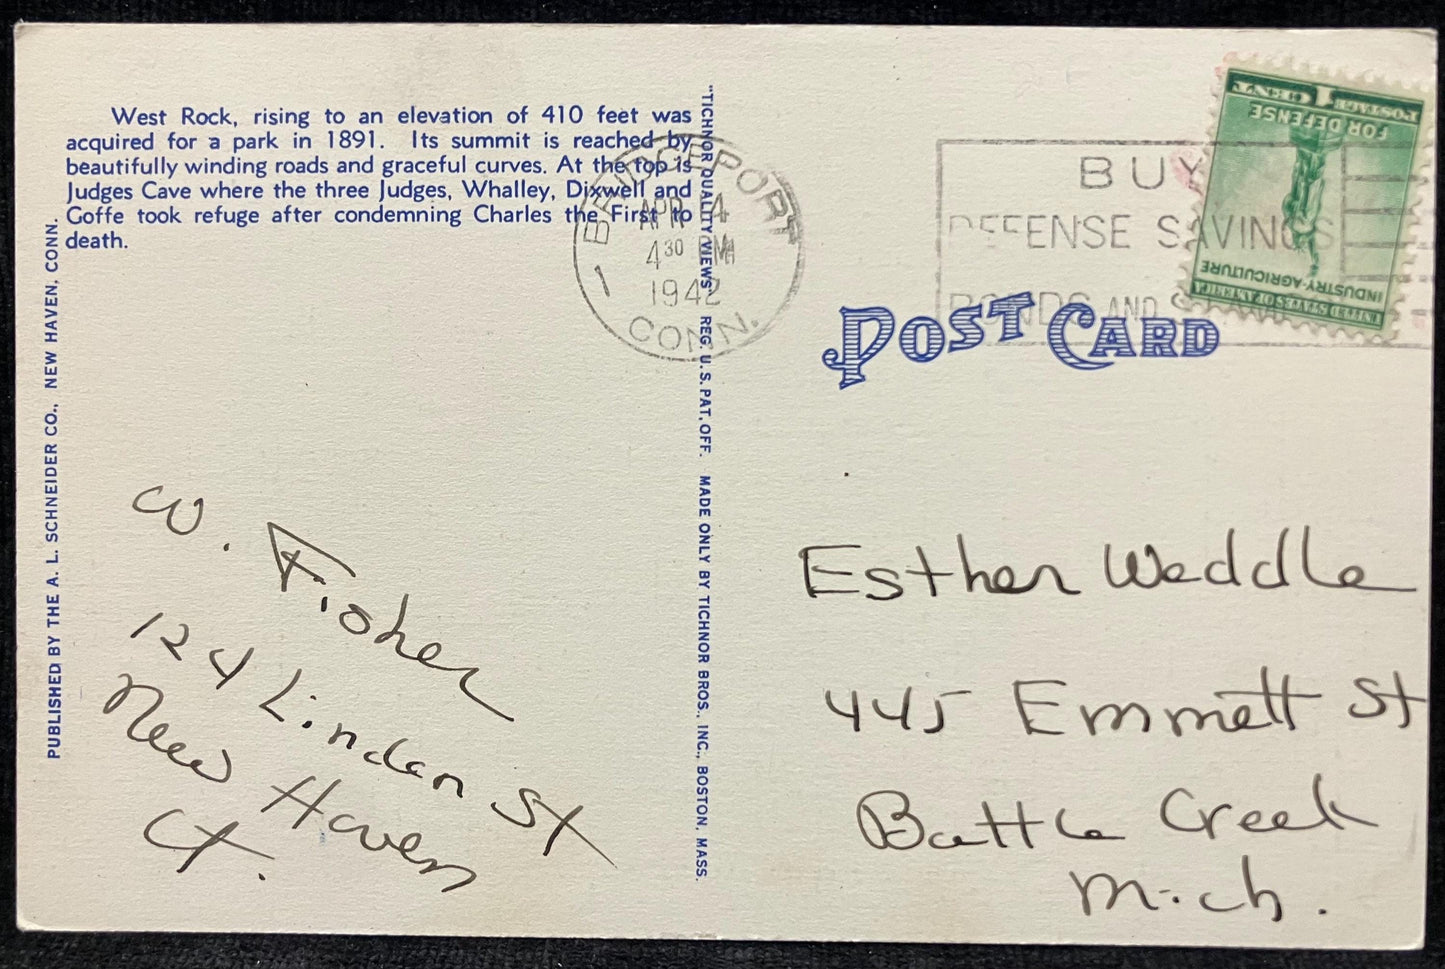 West Rock, rising to an elevation of 410 feet was
acquired for a park in 1891. Its summit is reached by
beautifully winding roads and graceful curves. At the top is
Judges Cave where the three Judges, Whalley, Dixwell and
Goffe took refuge after condemning Charles the First to
death.
PUBLISHED BY THE A. L. SCHNEIDER CO., NEW HAVEN, CONN.
W. Fisher
124 Linden St
New Haven
Ct.
"TICHNOR QUALITY VIEWS" REG. U. S. PAT. OFF. MADE ONLY BY TICHNOR BROS., INC., BOSTON, MASS.
BRIDGEPORT
1
APR 4
4 30 PM
1942
CONN.
BUY
DEFENSE SAVINGS
BONDS AND
1 CENT 1
POSTAGE
FOR DEFENSE
INDUSTRY-AGRICULTURE
UNITED STATES OF AMERICA
POST CARD
Esther Weddle
445 Emmett St
Battle Creek
Mich.